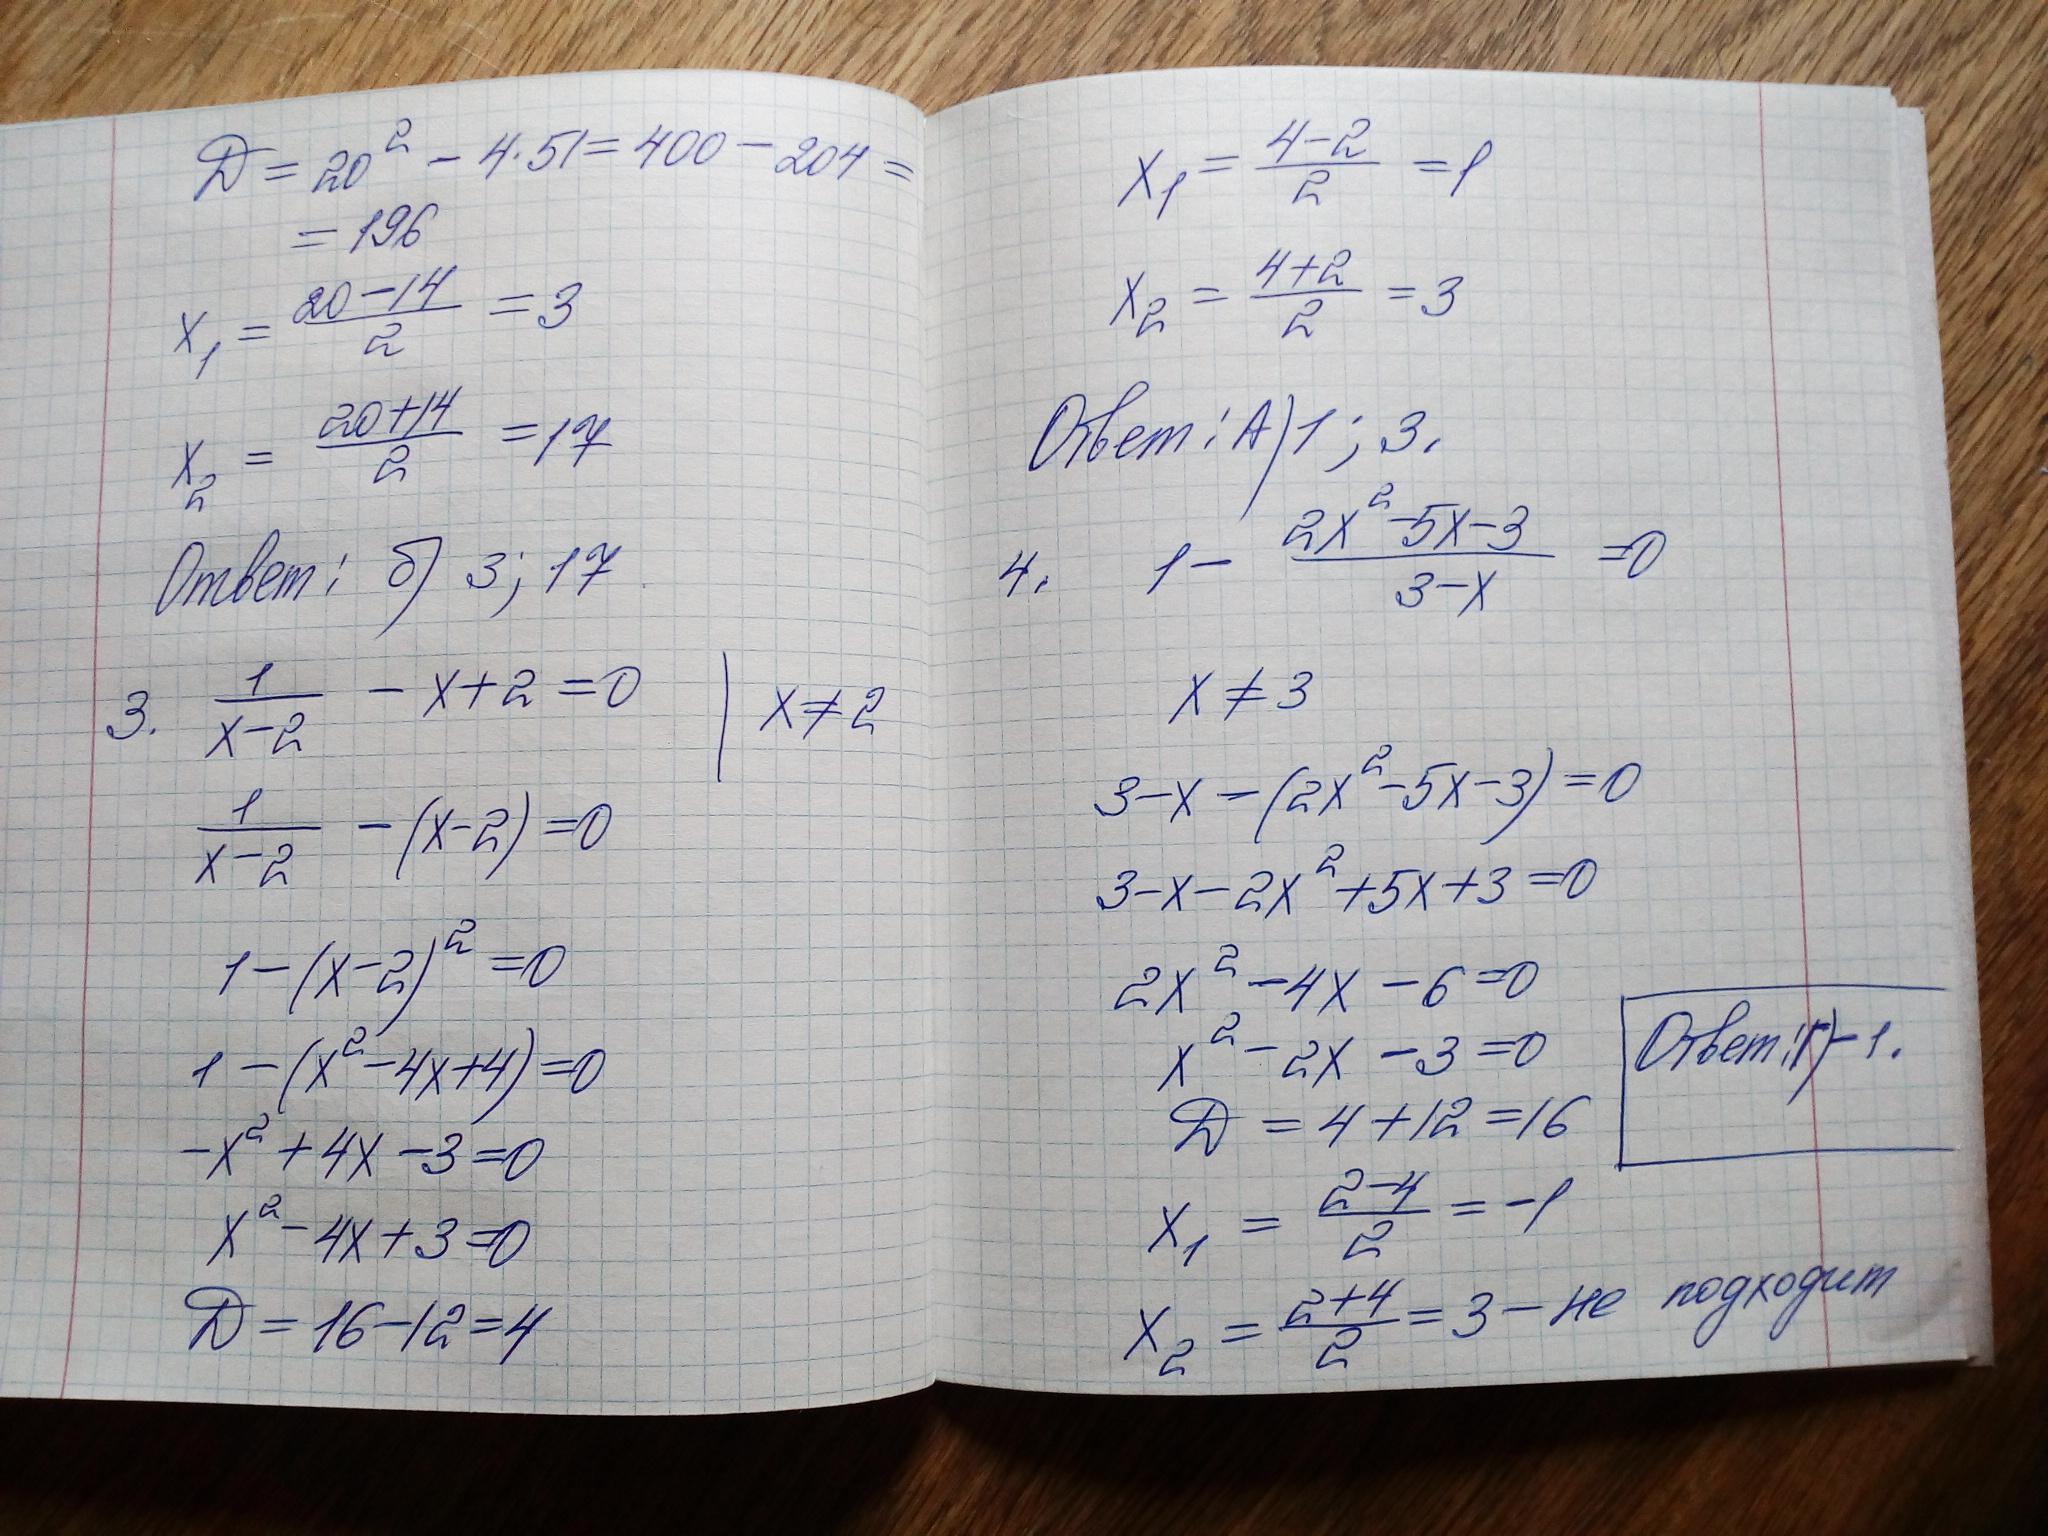 D = 20² - 4·51 = 400 - 204 =
= 196
x₁ = (20-14)/2 = 3
x₂ = (20+14)/2 = 17
Ответ: б) 3; 17.
3. 1/(x-2) - x+2 = 0 | x ≠ 2
1/(x-2) - (x-2) = 0
1 - (x-2)² = 0
1 - (x² - 4x + 4) = 0
-x² + 4x - 3 = 0
x² - 4x + 3 = 0
D = 16 - 12 = 4
x₁ = (4-2)/2 = 1
x₂ = (4+2)/2 = 3
Ответ: А) 1; 3.
4. 1 - (2x² - 5x - 3)/(3-x) = 0
x ≠ 3
3 - x - (2x² - 5x - 3) = 0
3 - x - 2x² + 5x + 3 = 0
2x² - 4x - 6 = 0
x² - 2x - 3 = 0
D = 4 + 12 = 16
x₁ = (2-4)/2 = -1
x₂ = (2+4)/2 = 3 - не подходит
Ответ: г) -1.